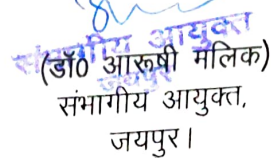 संभागीय आयुक्त
जयपुर
(डॉ0 आरूषी मलिक)
संभागीय आयुक्त,
जयपुर।